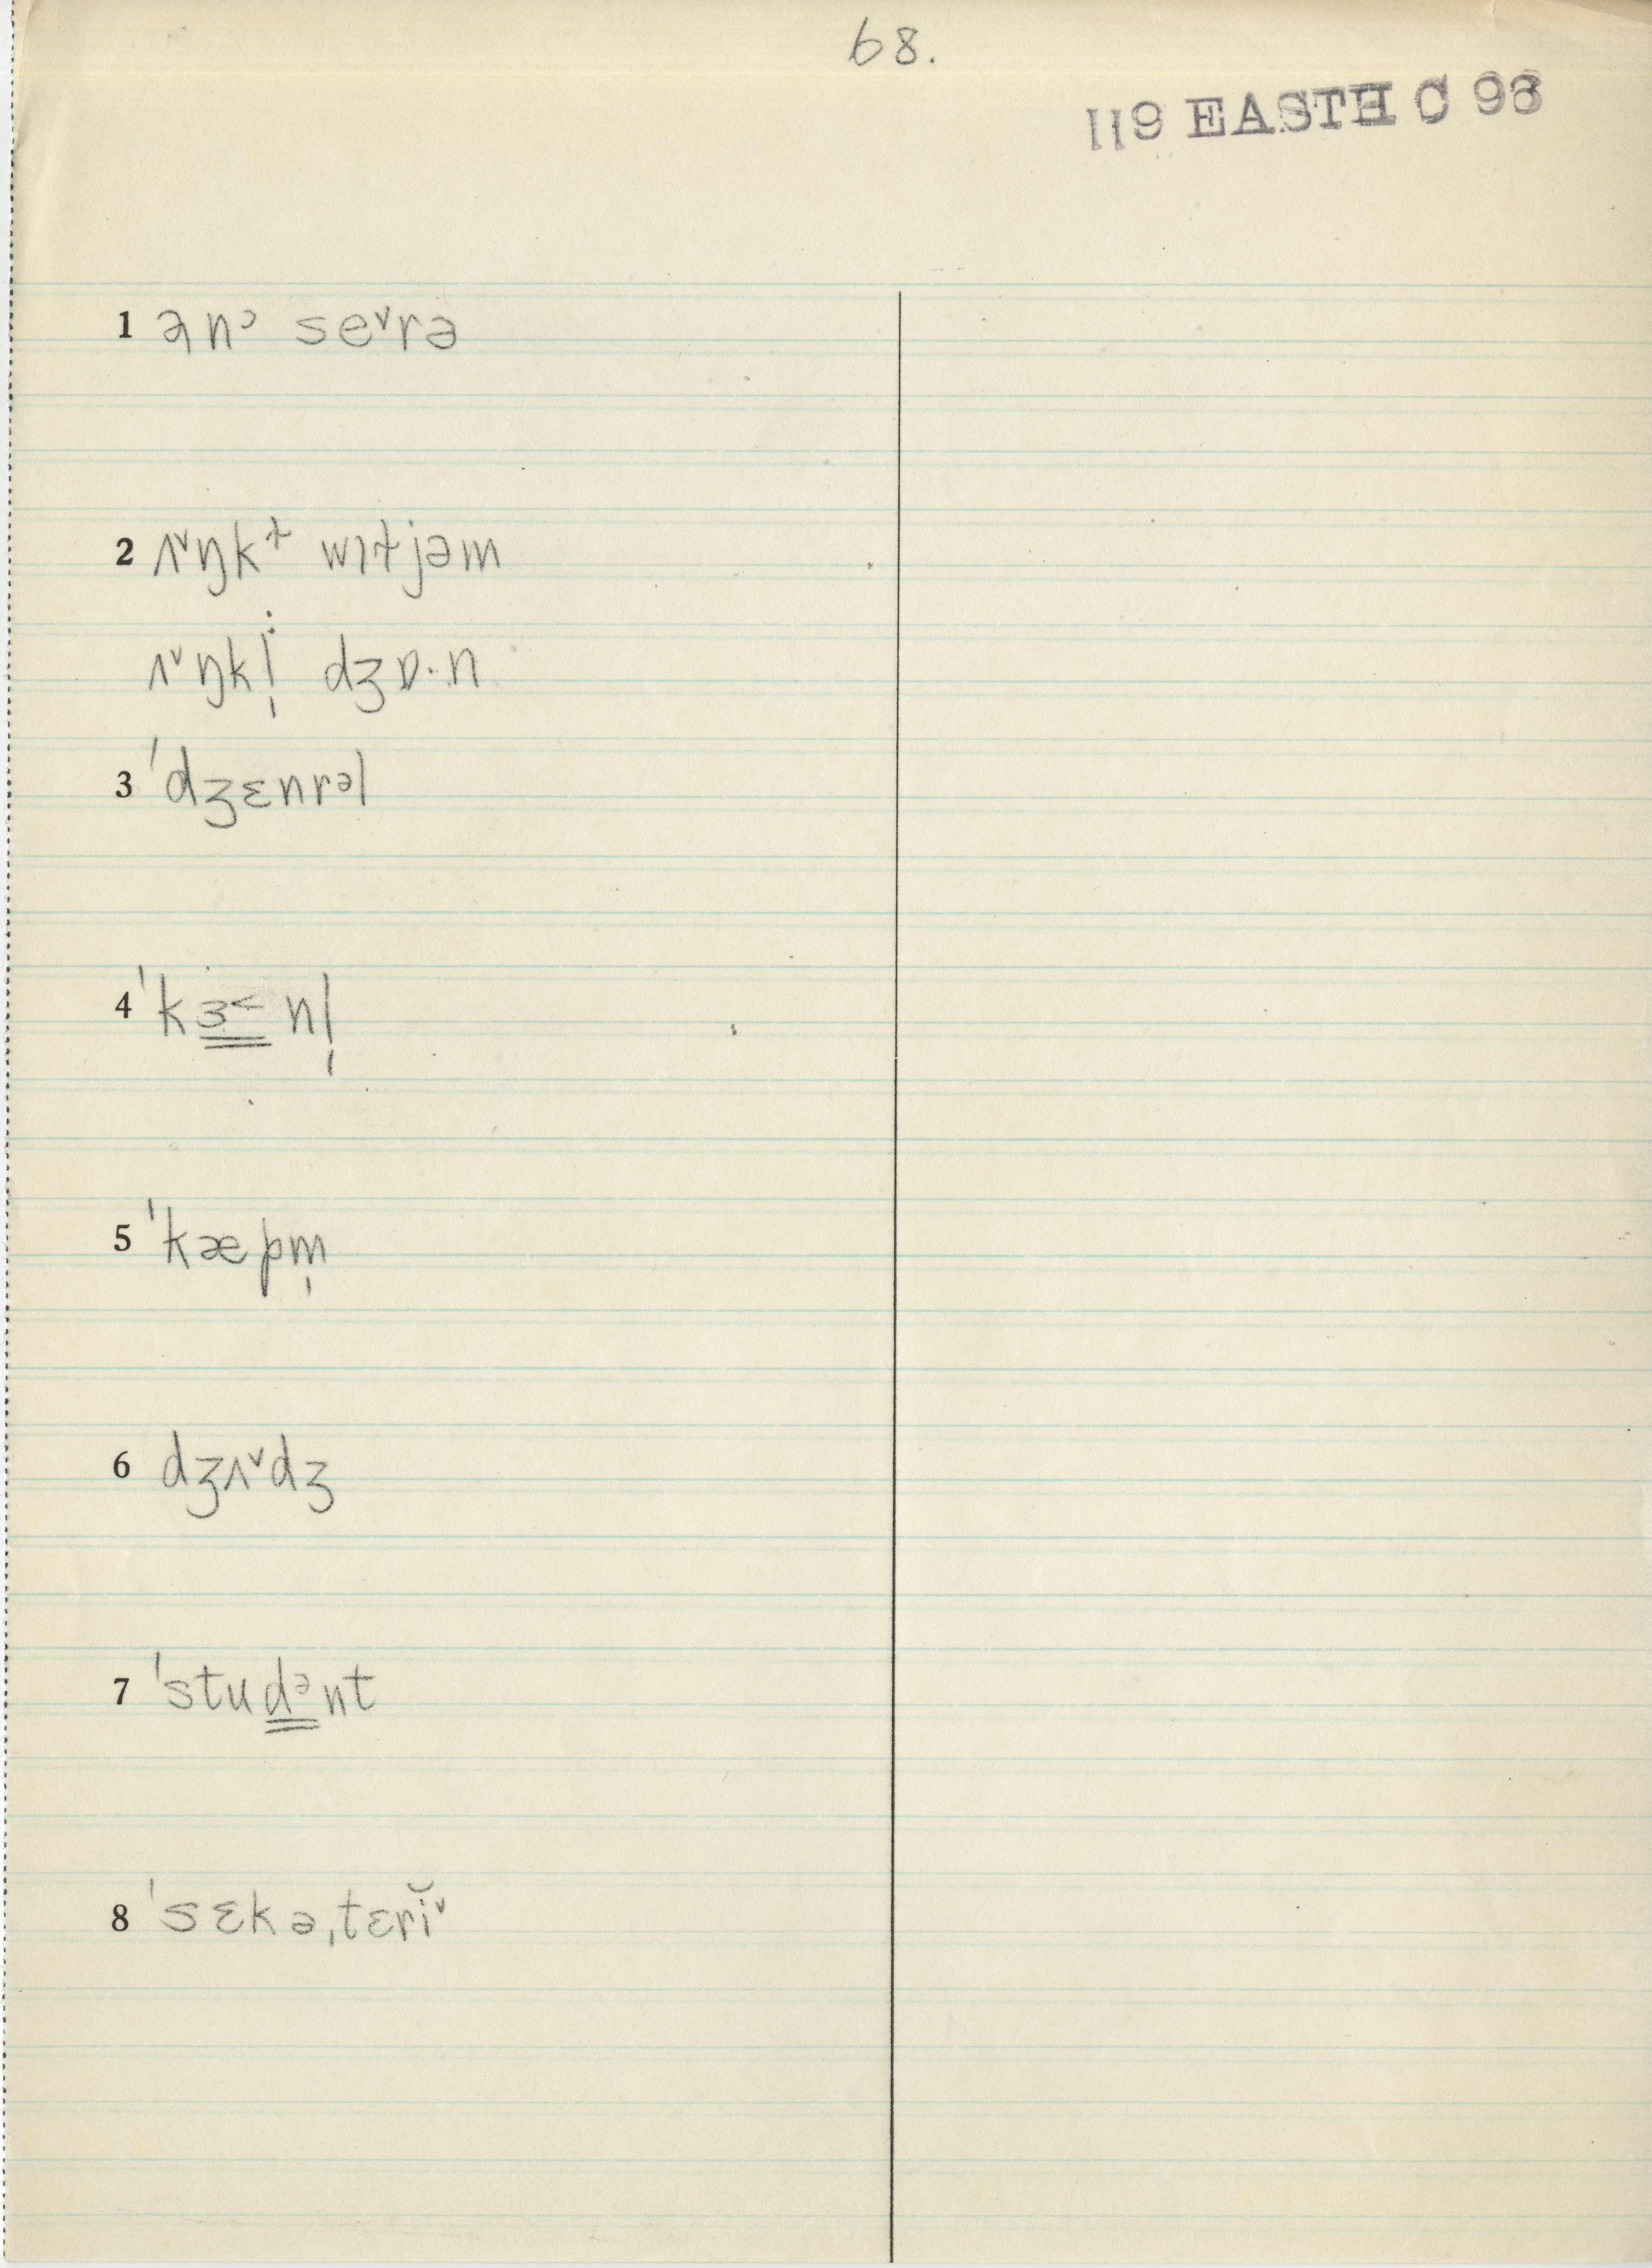 68.
119 EASTH C 93
1 ənᵓ seˇrə
2 ʌˇŋkᵗ̴ wɪɫjəm
ʌˇŋkl̩ dʒɒ·n
3 ˈdʒɛnrᵊl
4 ˈkɜ˂nl̩
5 ˈkæpm̩
6 dʒʌˇdʒ
7 ˈstudᵊnt
8 ˈsɛkəˌtɛrĭˇ